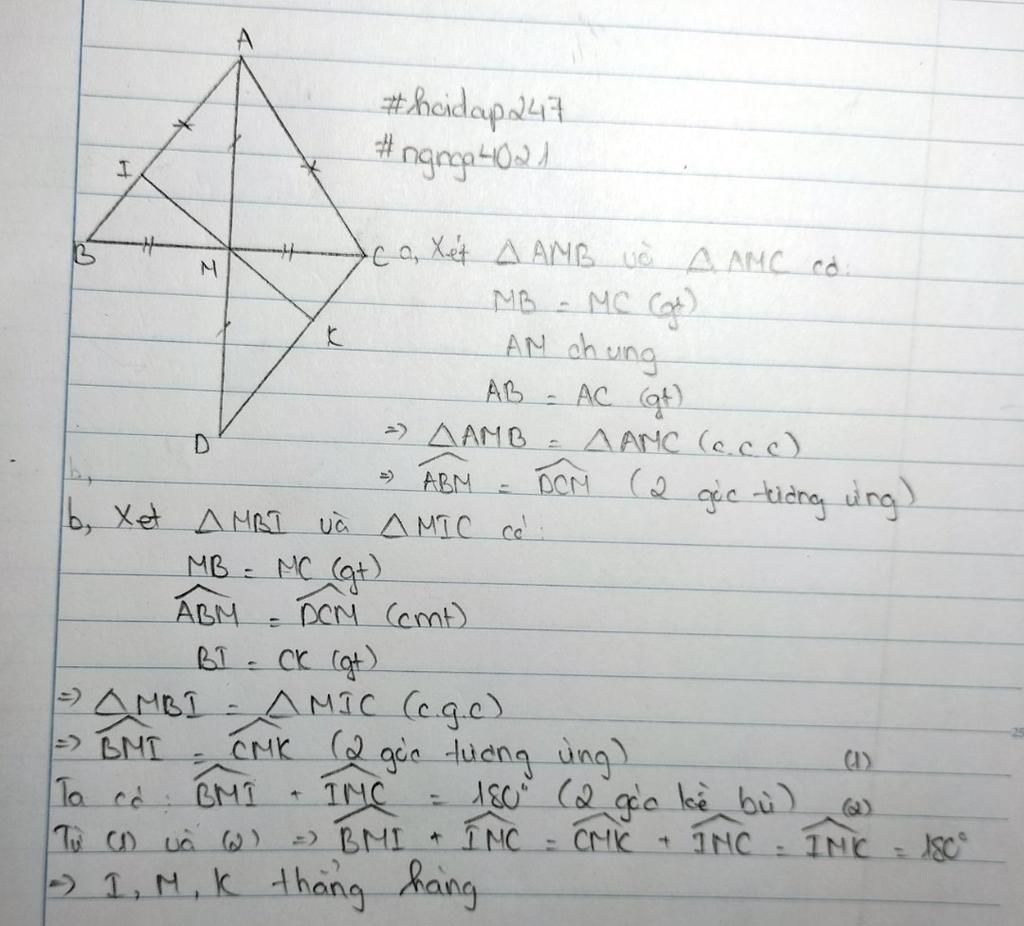 A
#hoidap247
#ngnga4021
I
B
M
C
a, Xét △AMB và △AMC có:
MB = MC (gt)
AM chung
K
AB = AC (gt)
D
=> △AMB = △AMC (c.c.c)
=> ABM = DCM (2 góc tương ứng)
b,
b, Xét △MBI và △MIC có:
MB = MC (gt)
ABM = DCM (cmt)
BI = CK (gt)
=> △MBI = △MIC (c.g.c)
=> BMI = CMK (2 góc tương ứng) (1)
Ta có: BMI + IMC = 180° (2 góc kề bù) (2)
Từ (1) và (2) => BMI + IMC = CMK + IMC = IMK = 180°
=> I, M, K thẳng hàng
25